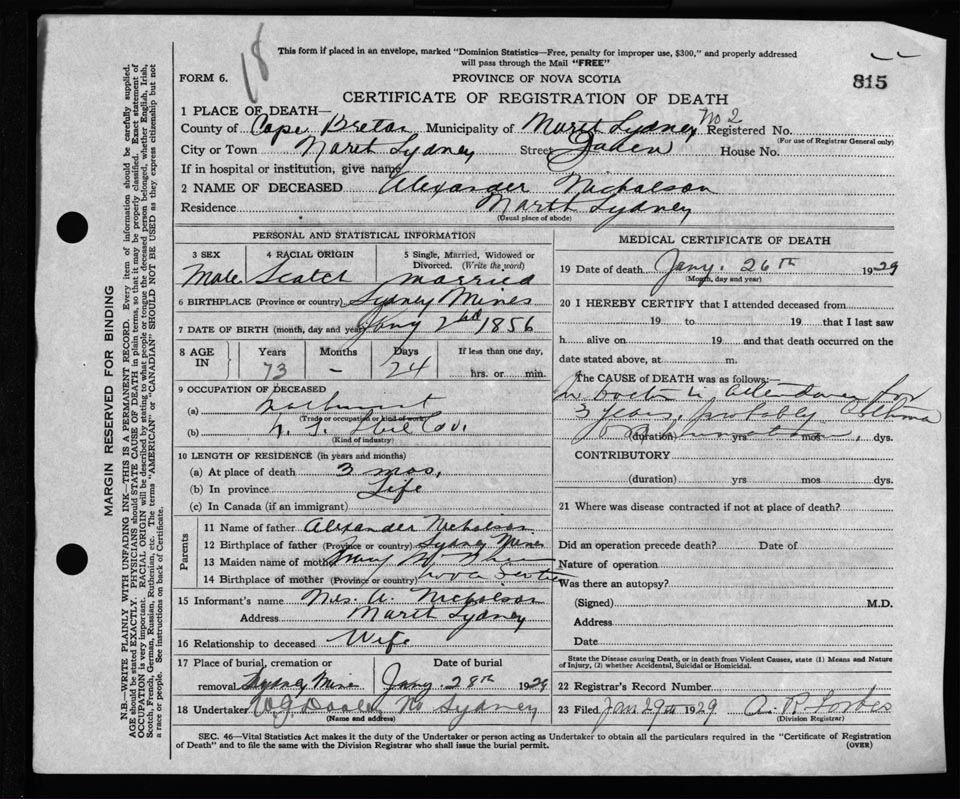 18
This form if placed in an envelope, marked "Dominion Statistics—Free, penalty for improper use, $300," and properly addressed
will pass through the Mail "FREE"
FORM 6.
PROVINCE OF NOVA SCOTIA
815
CERTIFICATE OF REGISTRATION OF DEATH
1 PLACE OF DEATH—
County of Cape Breton Municipality of North Sydney No 2 Registered No.
(For use of Registrar General only)
City or Town North Sydney Street House No.
If in hospital or institution, give name
2 NAME OF DECEASED Alexander Nicholson
Residence North Sydney
(Usual place of abode)
PERSONAL AND STATISTICAL INFORMATION
3 SEX 4 RACIAL ORIGIN 5 Single, Married, Widowed or Divorced. (Write the word)
Male Scotch Married
6 BIRTHPLACE (Province or country) Sydney Mines
7 DATE OF BIRTH (month, day and year) Jany 2nd 1856
8 AGE IN Years Months Days If less than one day,
73 - 24 hrs. or min.
9 OCCUPATION OF DECEASED
(a)
(Trade or occupation or kind of work)
(b) N. S. Steel Co.
(Kind of industry)
10 LENGTH OF RESIDENCE (in years and months)
(a) At place of death 3 mos.
(b) In province Life
(c) In Canada (if an immigrant)
Parents
11 Name of father Alexander Nicholson
12 Birthplace of father (Province or country) Sydney Mines
13 Maiden name of mother Mary
14 Birthplace of mother (Province or country) Nova Scotia
15 Informant's name Mrs. A. Nicholson
Address North Sydney
16 Relationship to deceased Wife
17 Place of burial, cremation or removal Sydney Mines Date of burial Jany 28th 1929
18 Undertaker W J Dooley N Sydney
(Name and address)
MEDICAL CERTIFICATE OF DEATH
19 Date of death Jany. 26th 1929
(Month, day and year)
20 I HEREBY CERTIFY that I attended deceased from
19 to 19 that I last saw
h alive on 19 and that death occurred on the
date stated above, at m.
The CAUSE of DEATH was as follows:
No Doctor in attendance for
3 years, probably Asthma
(duration) yrs mos dys.
CONTRIBUTORY
(duration) yrs mos dys.
21 Where was disease contracted if not at place of death?
Did an operation precede death? Date of
Nature of operation
Was there an autopsy?
(Signed) M.D.
Address
Date
State the Disease causing Death, or in death from Violent Causes, state (1) Means and Nature
of Injury, (2) whether Accidental, Suicidal or Homicidal.
22 Registrar's Record Number
23 Filed Jan 29th 1929 A. R. Forbes
(Division Registrar)
SEC. 46—Vital Statistics Act makes it the duty of the Undertaker or person acting as Undertaker to obtain all the particulars required in the "Certificate of Registration
of Death" and to file the same with the Division Registrar who shall issue the burial permit.
(OVER)
MARGIN RESERVED FOR BINDING
N.B.—WRITE PLAINLY WITH UNFADING INK—THIS IS A PERMANENT RECORD. Every item of information should be carefully supplied.
AGE should be stated EXACTLY. PHYSICIANS should STATE CAUSE OF DEATH in plain terms, so that it may be properly classified. Exact statement of
OCCUPATION is very important. RACIAL ORIGIN will be described by stating to what people or tongue the deceased person belonged, whether English, Irish,
Scotch, French, German, Russian, Ruthenian, etc. The terms "AMERICAN" or "CANADIAN" SHOULD NOT BE USED as they express citizenship but not
a race or people. See instructions on back of Certificate.